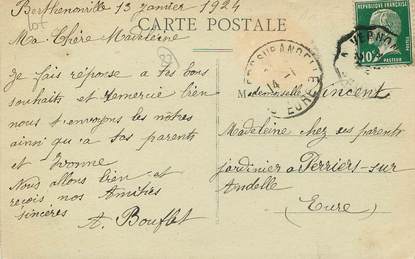 Berthenonville 13 janvier 1924
CARTE POSTALE
lot
Ma Chère Madeleine
Je fais réponse à tes bons
souhaits et remercie bien
nous t'envoyons les nôtres
ainsi qu'a tes parents
et Yvonne
Nous allons bien et
reçois nos Amitiés
sincères
A. Bouflet
Mademoiselle Vincent
Madeleine chez ses parents
jardinier a Perriers-sur
Andelle
(Eure)
RÉPUBLIQUE FRANÇAISE
10c
PASTEUR
SUR ANDELLE
14 - 1
EURE
VERNON